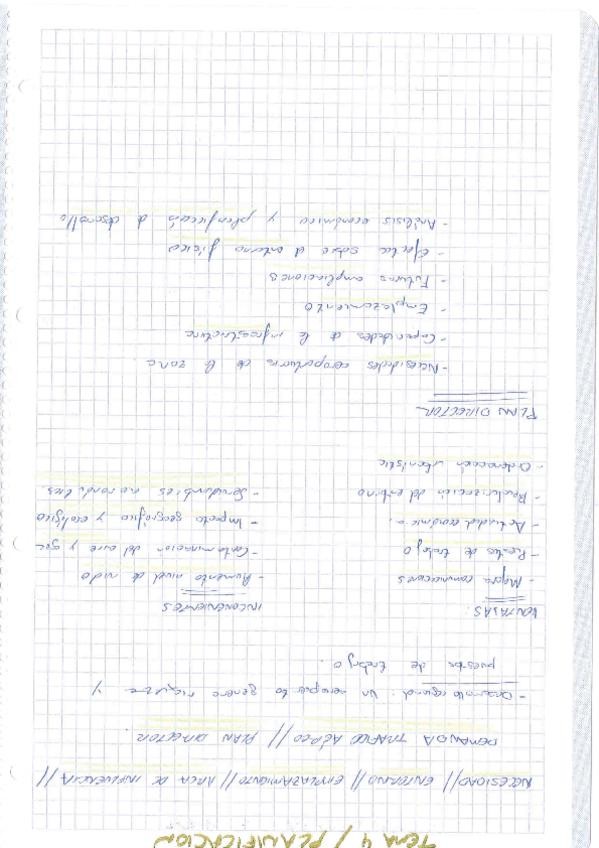 TEMA 4 / PLANIFICACION
NECESIDAD // ENTORNO // EMPLAZAMIENTO // AREA DE INFLUENCIA //
DEMANDA TRAFICO AÉREO // PLAN DIRECTOR.
- Desarrollo regional: Un aeropuerto genera riqueza y
puestos de trabajo.
VENTAJAS:
- Mejora comunicaciones
- Puestos de trabajo
- Actividad económica.
- Revalorización del entorno
- Ordenacion urbanistic
INCONVENIENTES
- Aumento nivel de ruido
- Contaminacion del aire y
- Impacto geográfico y ecológico
- Servidumbres aeronáuticas
PLAN DIRECTOR
- Necesidades aeroportuarias de la zona.
- Capacidades de la infraestructura
- Emplazamiento
- Futuras ampliaciones
- Efectos sobre el entorno físico
- Análisis económico y planificación d desarrollo